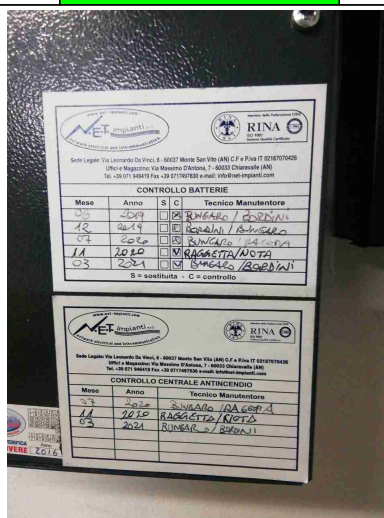 www.net-impianti.com
N.E.T. impianti s.r.l.
network electrical and telecommunication
Membro della Federazione CISQ
RINA
ISO 9001
Sistema Qualità Certificato
Sede Legale: Via Leonardo Da Vinci, 8 - 60037 Monte San Vito (AN) C.F e P.iva IT 02187070426
Uffici e Magazzino: Via Massimo D'Antona, 7 - 60033 Chiaravalle (AN)
Tel. +39 071 946419 Fax +39 0717497830 e-mail: info@net-impianti.com
CONTROLLO BATTERIE
Mese Anno S C Tecnico Manutentore
06 2019 BUNGARO / BORDINI
12 2019 BORDINI / BUNGARO
07 2020 BUNGARO /
11 2020 RAGGETTA/NOTA
03 2021 BUNGARO/BORDINI
S = sostituita - C = controllo
www.net-impianti.com
N.E.T. impianti s.r.l.
network electrical and telecommunication
Membro della Federazione CISQ
RINA
ISO 9001
Sistema Qualità Certificato
Sede Legale: Via Leonardo Da Vinci, 8 - 60037 Monte San Vito (AN) C.F e P.iva IT 02187070426
Uffici e Magazzino: Via Massimo D'Antona, 7 - 60033 Chiaravalle (AN)
Tel. +39 071 946419 Fax +39 0717497830 e-mail: info@net-impianti.com
CONTROLLO CENTRALE ANTINCENDIO
Mese Anno Tecnico Manutentore
07 2020 BUNGARO /
11 2020 RAGGETTA/NOTA
03 2021 BUNGARO/BORDINI
Anno
2016